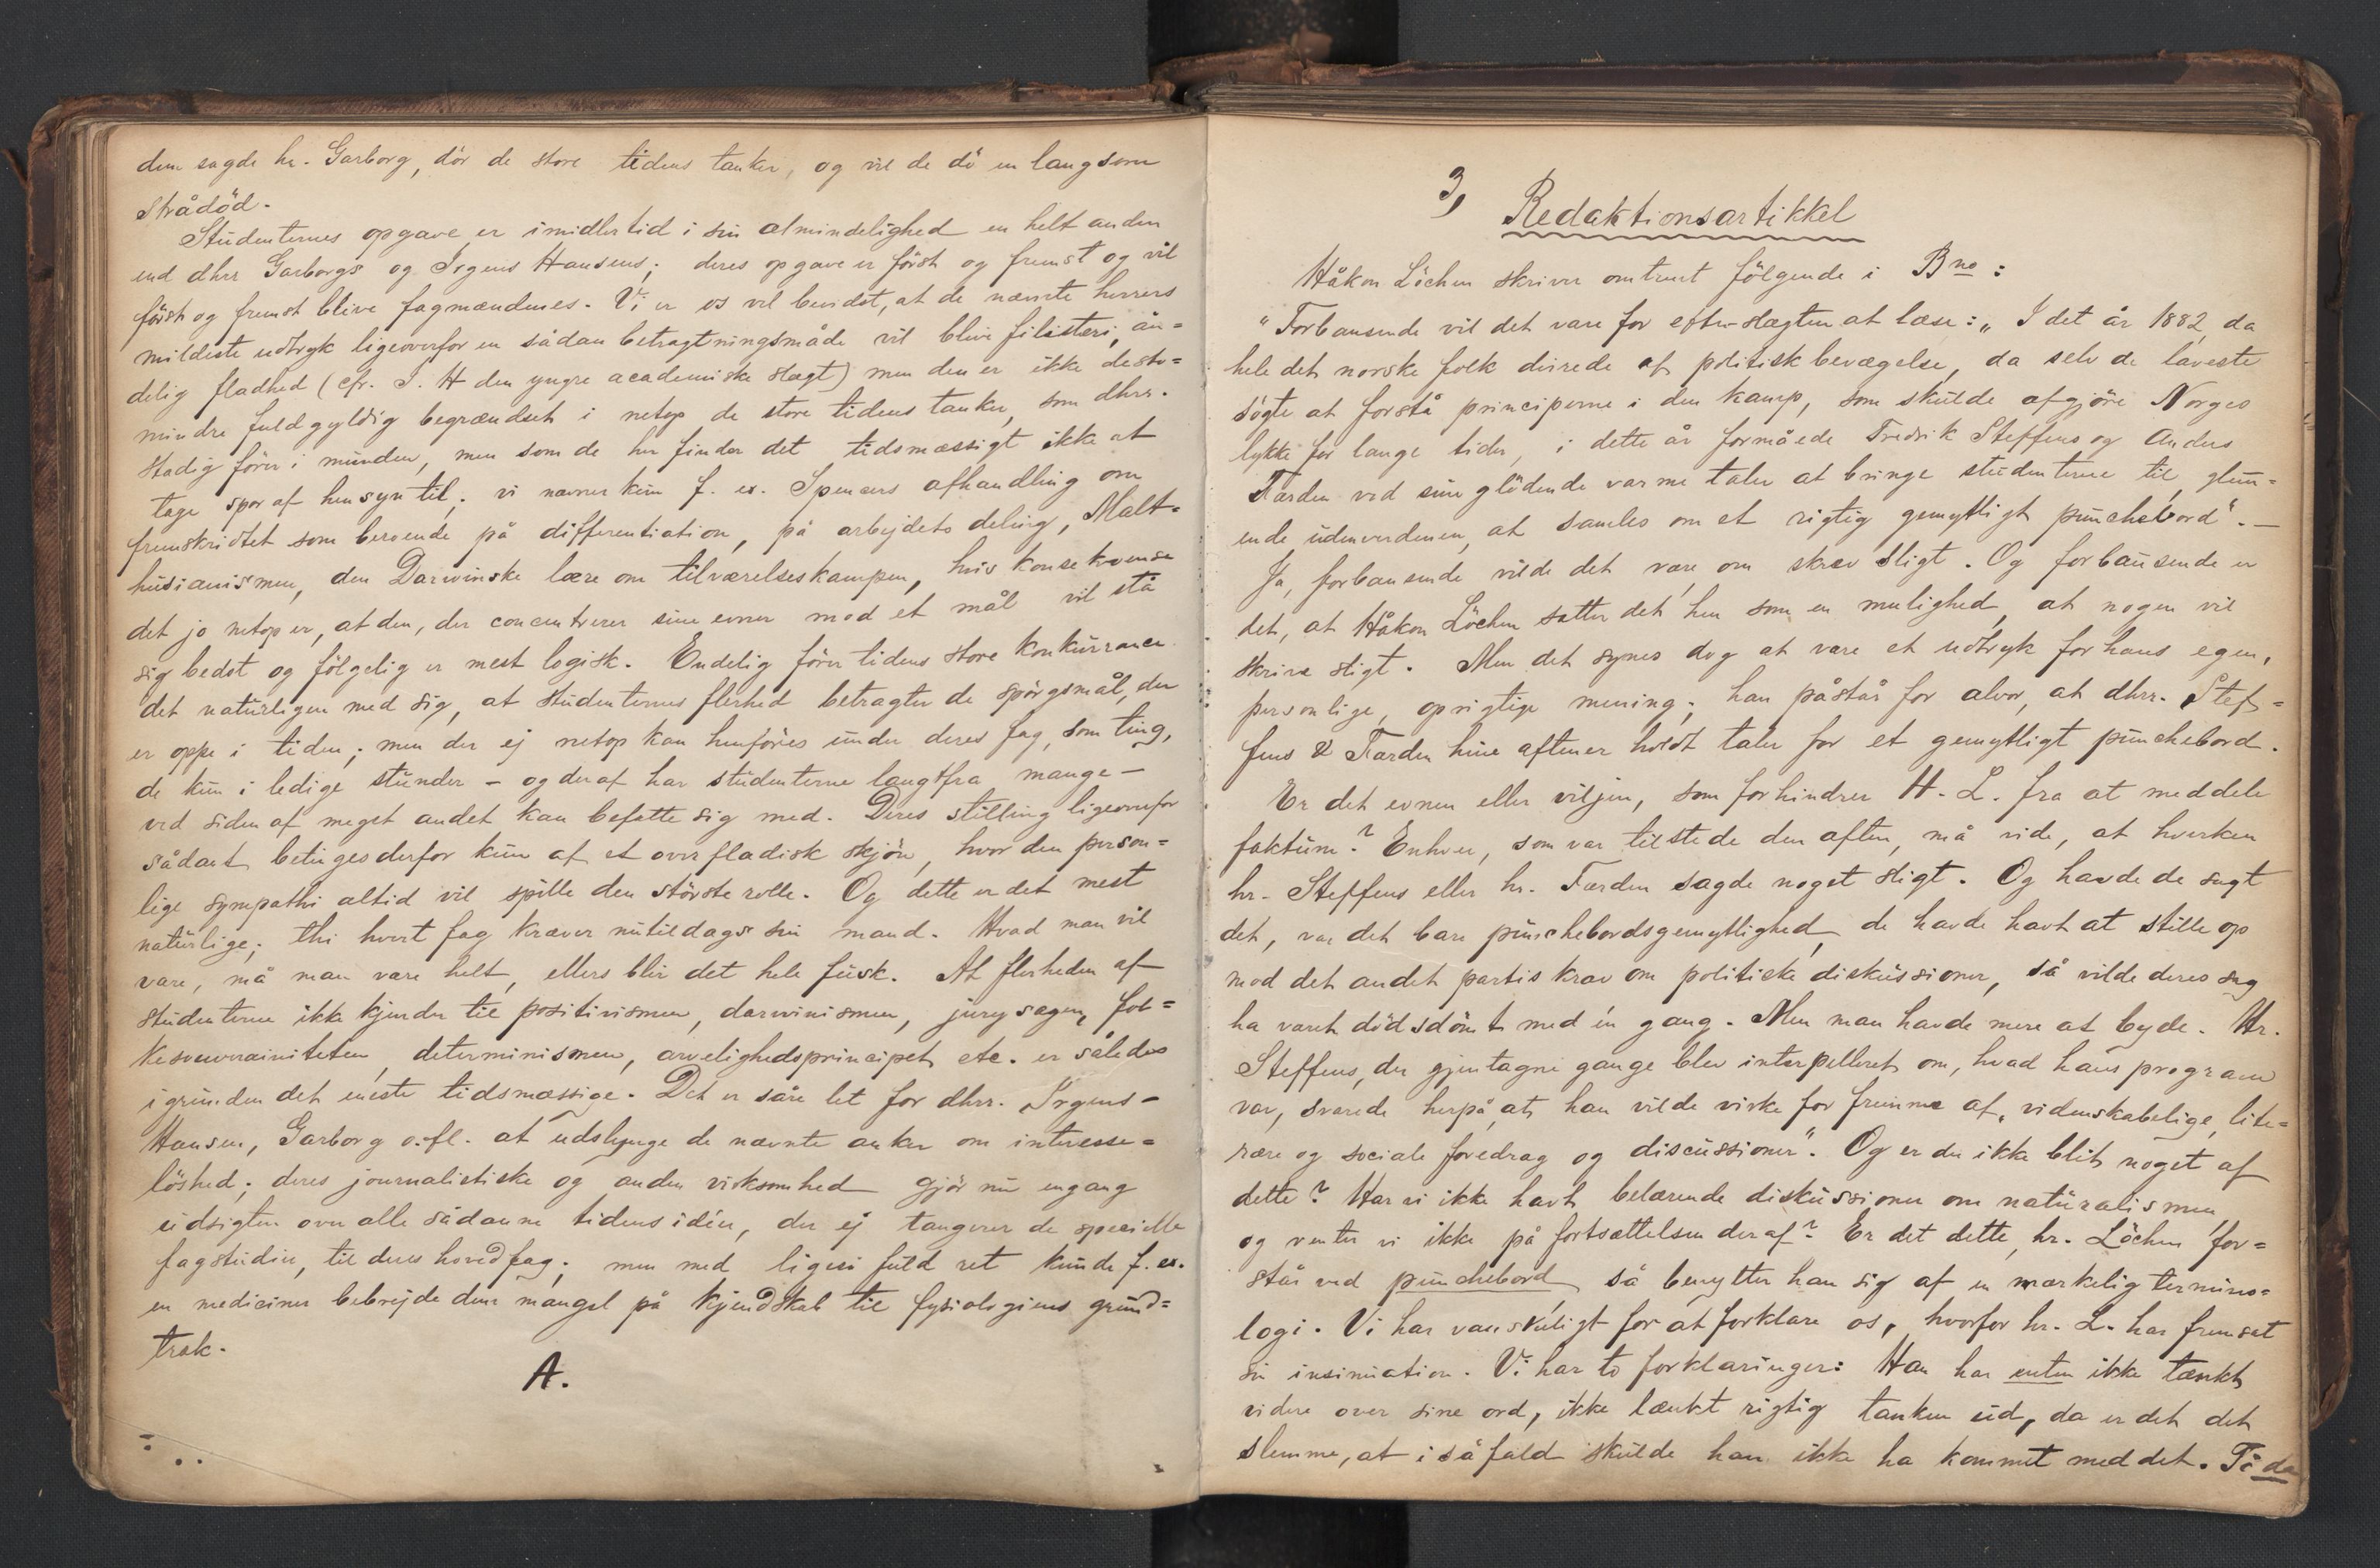 dem sagde hr. Garborg, dör de store tidens tanker, og vil de dö en langsom
strådöd.
Studenternes opgave er imidlertid i sin almindelighed en helt anden
end dhrr Garborgs og Irgens Hansens; deres opgave er först og fremst og vil
först og fremst blive fagmændenes. Vi er os vel bevidst, at de nævnte herrers
mildeste udtryk ligeoverfor en sådan betragtningsmåde vil blive filisteri, ån=
delig fladhed (cfr. I. H den yngre academiske slægt) men den er ikke desto=
mindre fuldgyldig begrændset i netop de store tidens tanker, som dhrr.
stadig förer i munden, men som de her finder det tidsmæssigt ikke at
tage spor af hensyn til; vi nævner kun f. ex. Spencers afhandling om
fremskridtet som beroende på differentiation, på arbejdets deling, Malt=
husianismen, den Darwinske lære om tilværelseskampen, hvis konsekvense
det jo netop er, at den, der concentrerer sine evner mod et mål vil stå
sig bedst og fölgelig er mest logisk. Endelig förer tidens store konkurrance
det naturligen med sig, at studenternes flerhed betragter de spörgsmål, der
er oppe i tiden; men der ej netop kan henföres under deres fag, som ting,
de kun i ledige stunder – og deraf har studenterne langtfra mange –
ved siden af meget andet kan befatte sig med. Deres stilling ligeoverfor
sådant betinges derfor kun af et overfladisk skjön, hvor den person=
lige sympathi altid vil spille den störste rolle. Og dette er det mest
naturlige; thi hvert fag kræver nutildags sin mand. Hvad man vil
være, må man være helt, ellers blir det hele fusk. At flerheden af
studenterne ikke kjender til positivismen, darwinismen, jurysagen, fol=
kesouveræiniteten, determinismen, arvelighedsprincipet etc. er således
igrunden det eneste tidsmæssige. Det er såre let for dhrr. Irgens-
Hansen, Garborg o.fl. at udslynge de nævnte anker om interesse=
löshed; deres journalistiske og anden virksomhed gjör nu engang
udsigten over alle sådanne tidens idéer, der ej tangerer de specielle
fagstudier, til deres hovedfag; men med ligeså fuld ret kunde f. ex.
en mediciner bebrejde dem mangel på kjendskab til fysiologiens grund=
træk.
A.
3, Redaktionsartikkel
Håkon Löchen skriver omtrent fölgende i B no :
"Forbausende vil det være for efterslægten at læse: "I det år 1882, da
hele det norske folk dirrede af politisk bevægelse, da selv de laveste
sögte at forstå principerne i den kamp, som skulde afgjöre Norges
lykke for lange tider, i dette år formåede Fredrik Steffens og Anders
Færden ved sine glödende varme taler at bringe studenterne til, glem=
ende udenverdenen, at samles om et rigtig gemytligt punchebord". –
Ja, forbausende vilde det være, om skrev sligt. Og forbausende er
det, at Håkon Löchen sætter det hen som en mulighed, at nogen vil
skrive sligt. Men det synes dog at være et udtryk for hans egen,
personlige, oprigtige mening; han påstår for alvor, at dhrr. Stef=
fens & Færden hine aftener holdt taler for et gemytligt punchebord.
Er det evnen eller viljen, som forhindrer H. L. fra at meddele
faktum? Enhver, som var tilstede den aften, må vide, at hverken
hr. Steffens eller hr. Færden sagde noget sligt. Og havde de sagt
det, var det bare punchebordsgemytlighed, de havde havt at stille op
mod det andet partis krav om politiske diskussioner, så vilde deres sag
ha været dödsdömt med én gang. Men man havde mere at byde. Hr.
Steffens, der gjentagne gange blev interpelleret om, hvad hans program
var, svarede herpå, at han vilde virke for fremme af "videnskabelige, lite=
rære og sociale foredrag og discussioner". Og er der ikke blit noget af
dette? Har vi ikke havt belærende diskussioner om naturalismen,
og venter vi ikke på fortsættelsen deraf? Er det dette, hr. Löchen for=
står ved punchebord, så benytter han sig af en mærkelig termino=
logi. Vi har vanskeligt for at forklare os, hvorfor hr. L. har fremsat
sin insinuation. Vi har to forklaringer: Han har enten ikke tænkt
videre over sine ord, ikke tænkt rigtig tanken ud, da er det det
slemme, at i så fald skulde han ikke ha kommet med det. Ti da